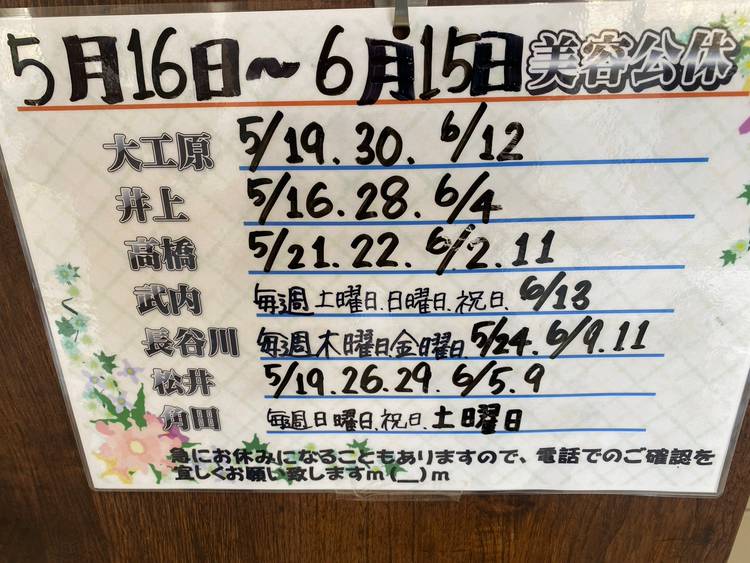 5月16日～6月15日 美容公休
大工原 5/19.30. 6/12
井上 5/16.28. 6/4
高橋 5/21.22. 6/2.11
武内 毎週土曜日.日曜日.祝日. 6/13
長谷川 毎週木曜日.金曜日. 5/24. 6/9.11
松井 5/19.26.29. 6/5.9
角田 毎週日曜日.祝日.土曜日
急にお休みになることもありますので、電話でのご確認を
宜しくお願い致しますm(__)m